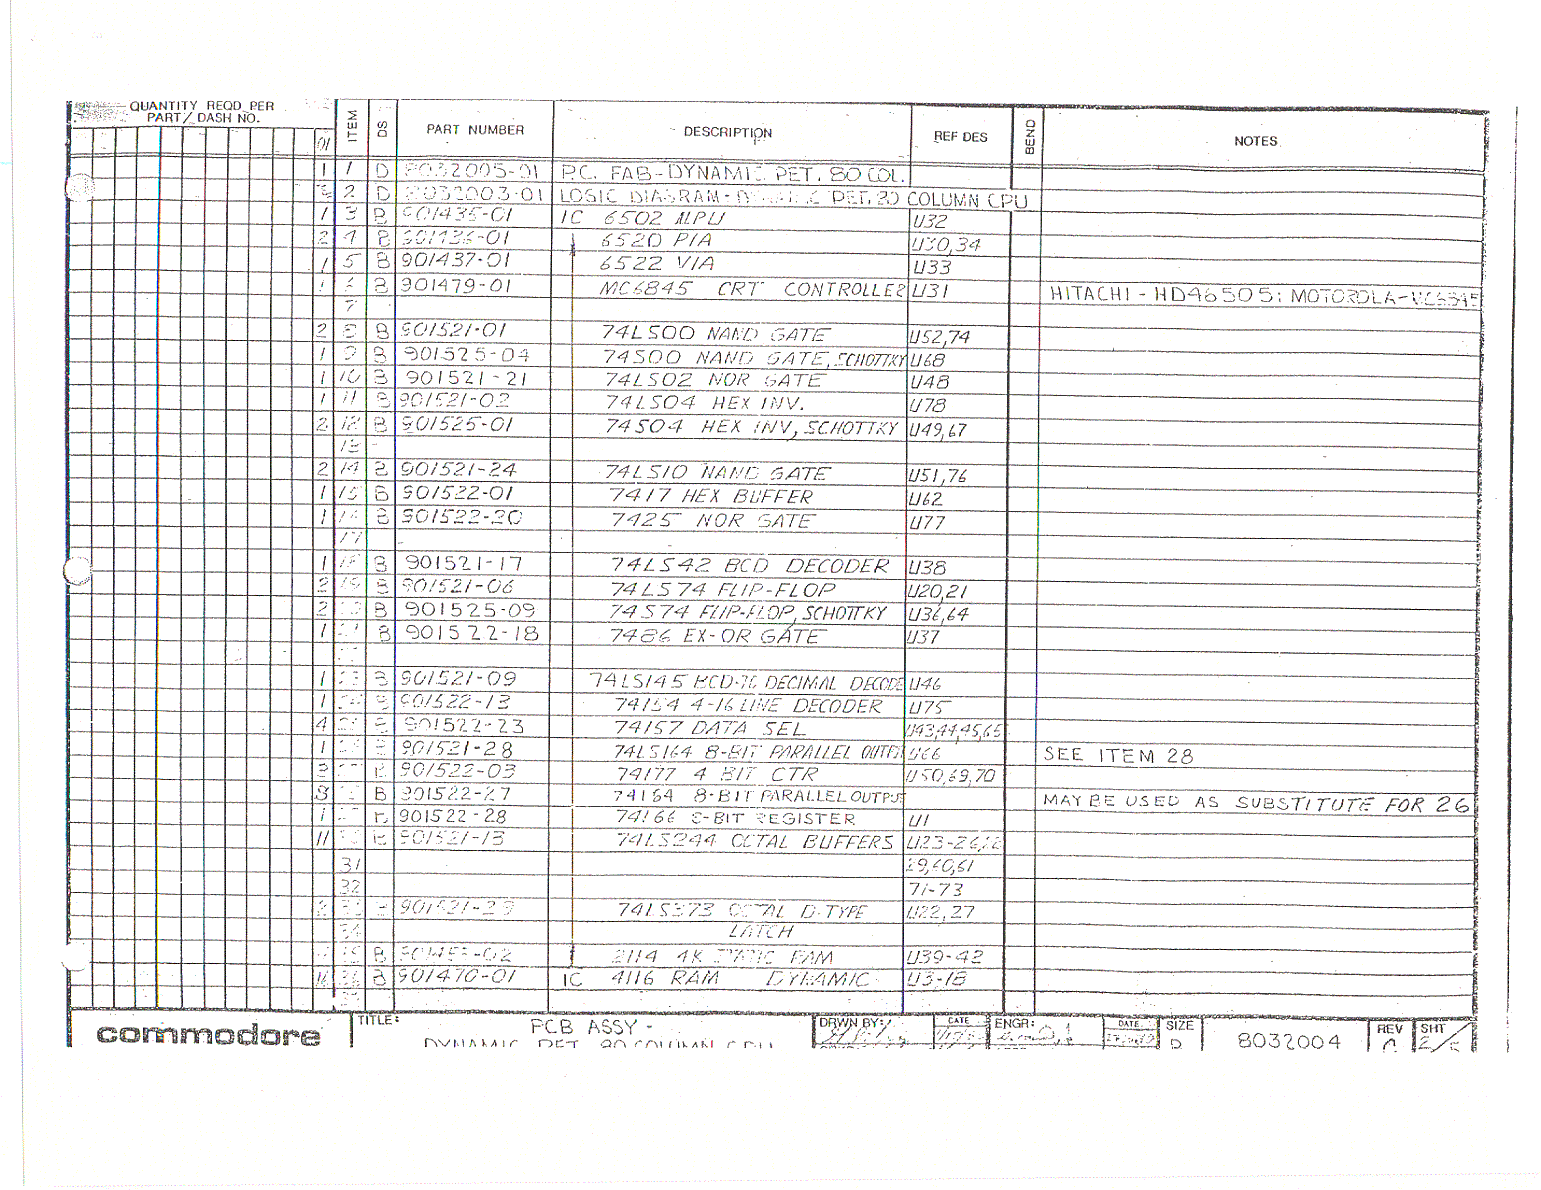 QUANTITY REQD PER
PART/DASH NO. ITEM DS PART NUMBER DESCRIPTION REF DES BEND NOTES
01
1 1 D 8032005-01 P.C. FAB-DYNAMIC PET. 80 COL.
2 D 8032003-01 LOGIC DIAGRAM- PET. 80 COLUMN CPU
1 3 B 901435-01 IC 6502 MPU U32
2 4 B 901436-01 6520 PIA U30,34
1 5 B 901437-01 6522 VIA U33
1 6 B 901479-01 MC6845 CRT CONTROLLER U31 HITACHI-HD46505; MOTOROLA-
7
2 8 B 901521-01 74LS00 NAND GATE U52,74
1 9 B 901525-04 74S00 NAND GATE, SCHOTTKY U68
1 10 B 901521-21 74LS02 NOR GATE U48
1 11 B 901521-02 74LS04 HEX INV. U78
2 12 B 901525-01 74S04 HEX INV, SCHOTTKY U49,67
13
2 14 B 901521-24 74LS10 NAND GATE U51,76
1 15 B 901522-01 7417 HEX BUFFER U62
1 B 901522-20 7425 NOR GATE U77
17
1 18 B 901521-17 74LS42 BCD DECODER U38
2 19 B 901521-06 74LS74 FLIP-FLOP U20,21
2 B 901525-09 74S74 FLIP-FLOP, SCHOTTKY U36,64
1 B 901522-18 7486 EX-OR GATE U37
1 B 901521-09 74LS145 BCD-TO DECIMAL DECODE U46
1 B 901522-13 74154 4-16 LINE DECODER U75
4 901522-23 74157 DATA SEL U43,44,45,65
1 901521-28 74LS164 8-BIT PARALLEL OUTPU U66 SEE ITEM 28
3 B 901522-03 74177 4 BIT CTR U50,69,70
B 901522-27 74164 8-BIT PARALLEL OUTPU MAY BE USED AS SUBSTITUTE FOR 26
1 B 901522-28 74166 8-BIT REGISTER U1
11 B 901521-13 74LS244 OCTAL BUFFERS U23-26,
31 29,60,61
32 71-73
2 901521-29 74LS373 OCTAL D-TYPE U22,27
34 LATCH
35 B 2114 4K STATIC RAM U39-42
16 36 B 901470-01 IC 4116 RAM DYNAMIC U3-18
commodore TITLE: PCB ASSY -
DYNAMIC PET 80 COLUMN CPU
DRWN BY: DATE ENGR: DATE SIZE D 8032004 REV C SHT 2/5